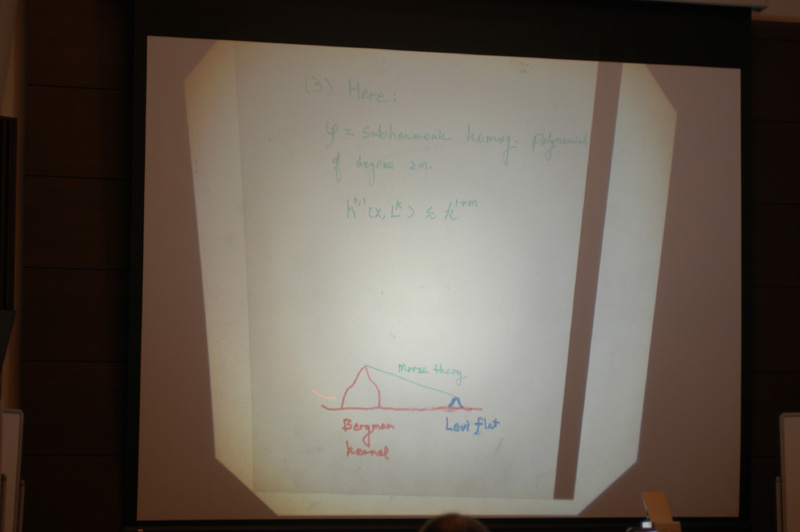 (3) Here:
φ = subharmonic homog. polynomial
of degree 2m.
h⁰,¹(X, Lᵏ) ≤ k¹⁺ᵐ
Morse theory
Bergman
kernel
Levi flat